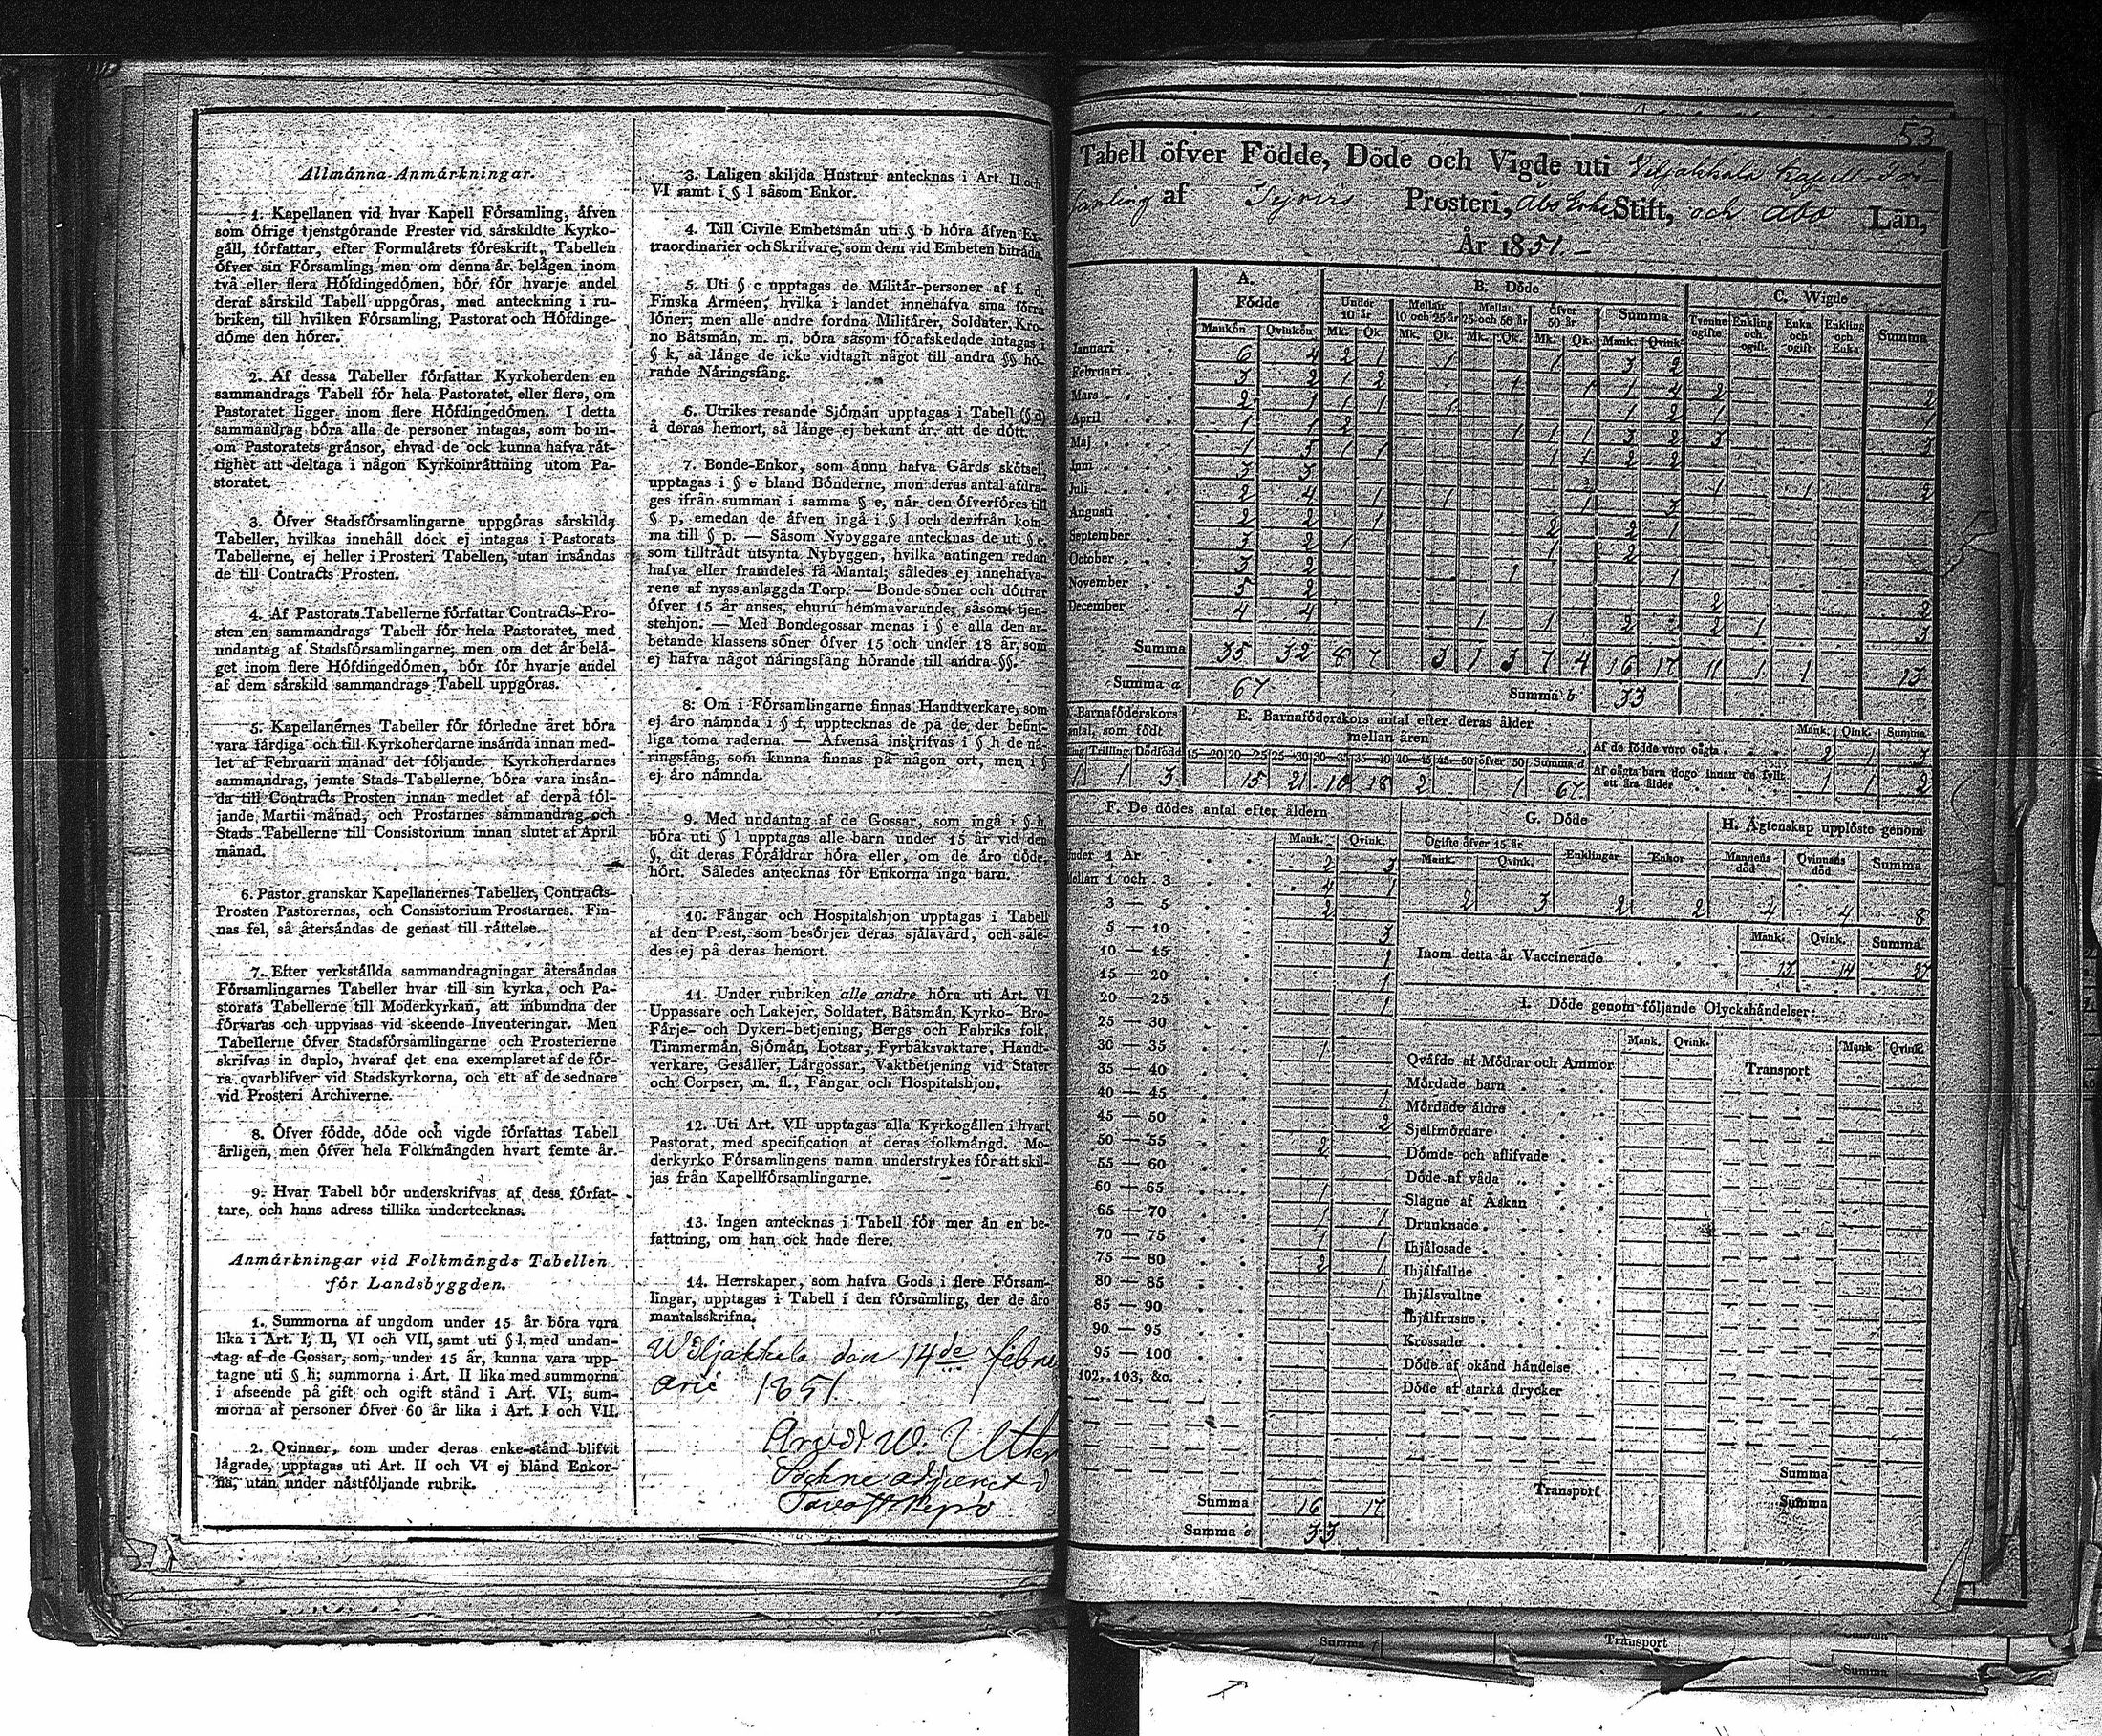 Allmånna Anmårkningar.
1. Kapellanen vid hvar Kapell Fôrsamling, åfven
som ôfrige tjenstgôrande Prester vid sårskildte Kyrko-
gåll, fôrfattar, efter Formulårets fôreskrift, Tabellen
ôfver sin Fôrsamling; men om denna år belågen inom
två eller flera Hôfdingedômen, bôr fôr hvarje andel
deraf sårskild Tabell uppgôras, med anteckning i ru-
briken, till hvilken Fôrsamling, Pastorat och Hôfdinge-
dôme den hôrer.
2. Af dessa Tabeller fôrfattar Kyrkoherden en
sammandrags Tabell fôr hela Pastoratet, eller flera, om
Pastoratet ligger inom flere Hôfdingedômen. I detta
sammandrag bôra alla de personer intagas, som bo in-
om Pastoratets grånsor, ehvad de ock kunna hafva råt-
tighet att deltaga i någon Kyrkoinråttning utom Pa-
storatet.
3. Ôfver Stadsfôrsamlingarne uppgôras sårskilda
Tabeller, hvilkas innehåll dock ej intagas i Pastorats
Tabellerne, ej heller i Prosteri Tabellen, utan insåndas
de till Contracts Prosten.
4. Af Pastorats Tabellerne fôrfattar Contracts-Pro-
sten en sammandrags Tabell fôr hela Pastoratet, med
undantag af Stadsfôrsamlingarne; men om det år belå-
get inom flere Hôfdingedômen, bôr fôr hvarje andel
af dem sårskild sammandrags Tabell uppgôras.
5. Kapellanernes Tabeller fôr fôrledne året bôra
vara fårdiga och till Kyrkoherdarne insånda innan med-
let af Februarii månad det fôljande. Kyrkoherdarnes
sammandrag, jemte Stads-Tabellerne, bôra vara insån-
da till Contracts Prosten innan medlet af derpå fôl-
jande Martii månad, och Prostarnes sammandrag och
Stads-Tabellerne till Consistorium innan slutet af April
månad.
6. Pastor granskar Kapellanernes Tabeller, Contracts-
Prosten Pastorernas, och Consistorium Prostarnes. Fin-
nas fel, så återsåndas de genast till råttelse.
7. Efter verkstållda sammandragningar återsåndas
Fôrsamlingarnes Tabeller hvar till sin kyrka, och Pa-
storats Tabellerne till Moderkyrkan, att inbundna der
fôrvaras och uppvisas vid skeende Inventeringar. Men
Tabellerne ôfver Stadsfôrsamlingarne och Prosterierne
skrifvas in duplo, hvaraf det ena exemplaret af de fôr-
ra qvarblifver vid Stadskyrkorna, och ett af de sednare
vid Prosteri Archiverne.
8. Ôfver fôdde, dôde och vigde fôrfattas Tabell
årligen, men ôfver hela Folkmångden hvart femte år.
9. Hvar Tabell bôr underskrifvas af dess fôrfat-
tare, och hans adress tillika undertecknas.
Anmårkningar vid Folkmångds Tabellen
fôr Landsbyggden.
1. Summorna af ungdom under 15 år bôra vara
lika i Art. I, II, VI och VII, samt uti § l, med undan-
tag af de Gossar, som, under 15 år, kunna vara upp-
tagne uti § h; summorna i Art. II lika med summorna
i afseende på gift och ogift stånd i Art. VI; sum-
morna af personer ôfver 60 år lika i Art. I och VII.
2. Qvinnor, som under deras enke-stånd blifvit
lågrade, upptagas uti Art. II och VI ej bland Enkor-
na, utan under nåstfôljande rubrik.
3. Laligen skiljda Hustrur antecknas i Art. II och
VI samt i § l såsom Enkor.
4. Till Civile Embetsmån uti § b hôra åfven Ex-
traordinarier och Skrifvare, som dem vid Embeten bitråda.
5. Uti § c upptagas de Militår-personer af f. d.
Finska Armeen, hvilka i landet innehafva sina fôrra
lôner; men alle andre fordna Militårer, Soldater, Kro-
no Båtsmån, m. m. bôra såsom fôrafskedade intagas i
§ k, så långe de icke vidtagit något till andra §§ hô-
rande Nåringsfång.
6. Utrikes resande Sjômån upptagas i Tabell (§ d)
å deras hemort, så långe ej bekant år, att de dôtt.
7. Bonde-Enkor, som ånnu hafva Gårds skôtsel,
upptagas i § e bland Bônderne, men deras antal afdra-
ges ifrån summan i samma § e, når den ôfverfôres till
§ p, emedan de åfven ingå i § l och derifrån kom-
ma till § p. — Såsom Nybyggare antecknas de uti § e,
som tilltrådt utsynta Nybyggen, hvilka antingen redan
hafva eller framdeles få Mantal; således ej innehafva-
rene af nyss anlaggda Torp. — Bonde sôner och dôttrar
ôfver 15 år anses, ehuru hemmavarande, såsom tjen-
stehjon. — Med Bondegossar menas i § e alla den ar-
betande klassens sôner ôfver 15 och under 18 år, som
ej hafva något nåringsfång hôrande till andra §§.
8. Om i Fôrsamlingarne finnas Handtverkare, som
ej åro nåmnda i § f, upptecknas de på de der befint-
liga toma raderna. — Åfvenså inskrifvas i § h de nå-
ringsfång, som kunna finnas på någon ort, men i §
ej åro nåmnda.
9. Med undantag af de Gossar, som ingå i § h,
bôra uti § l upptagas alle barn under 15 år vid den
§, dit deras Fôråldrar hôra eller, om de åro dôde,
hôrt. Således antecknas fôr Enkorna inga barn.
10. Fångar och Hospitalshjon upptagas i Tabell
af den Prest, som besôrjer deras sjålavård, och såle-
des ej på deras hemort.
11. Under rubriken alle andre hôra uti Art. VI
Uppassare och Lakejer, Soldater, Båtsmån, Kyrko- Bro-
Fårje- och Dykeri-betjening, Bergs och Fabriks folk,
Timmermån, Sjômån, Lotsar, Fyrbåksvaktare, Handt-
verkare, Gesåller, Lårgossar, Vaktbetjening vid Stater
och Corpser, m. fl., Fångar och Hospitalshjon.
12. Uti Art. VII upptagas alla Kyrkogållen i hvart
Pastorat, med specification af deras folkmångd. Mo-
derkyrko Fôrsamlingens namn understrykes fôr att skil-
jas från Kapellfôrsamlingarne.
13. Ingen antecknas i Tabell fôr mer ån en be-
fattning, om han ock hade flere.
14. Herrskaper, som hafva Gods i flere Fôrsam-
lingar, upptagas i Tabell i den fôrsamling, der de åro
mantalsskrifna.
Wiljakkala den 14de febru
arie 1851
Arvid W.
Sockne adjunct
53
Tabell ôfver Fôdde, Dôde och Vigde uti Viljakkala Kapell För-
samling af Prosteri, Åbo Erke Stift, och Åbo Län,
År 1851.
A. B. Dôde C. Wigde
Fôdde Under 10 år Mellan 10 och 25 år Mellan 25 och 50 år ôfver 50 år Summa Tvenne ogifte Enkling och ogift Enka och ogift Enkling och Enka Summa
Mankôn Qvinkôn Mk. Qk. Mk. Qk. Mk. Qk. Mk. Qk. Mank. Qvink.
Januari 6 4 2 1 1 1 3 2
Februari 3 2 1 2 1 1 1 4 2 2
Mars 2 1 1 1 1 1 2 1 1
April 1 1 2 1 1 1 3 2 3 3
Maj 1 5 1 1 1 1 2 2
Juni 3 3
Juli 2 4 1 1 1 3 1 1 2
Augusti 2 2 1 2 2 1
September 3 2 1 1 2
October 3 2 1 1
November 5 2 2 2
December 4 4 1 1 2 2 1 3
Summa 35 32 8 7 3 1 3 7 4 16 17 11 1 1 13
Summa a 67 Summa b 33
Barnafôderskors antal, som fôdt E. Barnafôderskors antal efter deras ålder mellan åren
Tvilling Trilling Dôdfôdd 15—20 20—25 25—30 30—35 35—40 40—45 45—50 ôfver 50 Summa d
1 1 3 15 21 10 18 2 1 67
Mank. Qvink. Summa
Af de fôdde voro oågta 2 1 3
Af oågta barn dogo innan de fyllt ett års ålder 1 1 2
F. De dôdes antal efter åldern
Mank. Qvink.
Under 1 År 2 3
Mellan 1 och 3 4 1
3 — 5 2
5 — 10 3
10 — 15 1
15 — 20 1
20 — 25 1
25 — 30
30 — 35 1
35 — 40
40 — 45 1
45 — 50 2
50 — 55 2
55 — 60
60 — 65 1
65 — 70 1 1
70 — 75 1 1
75 — 80 2 1
80 — 85 1
85 — 90
90 — 95
95 — 100
102, 103, &c.
Summa 16 17
Summa e 33
G. Dôde
Ogifte ôfver 15 år Enklingar Enkor
Mank. Qvink.
2 3 2 2
H. Ågtenskap upplôste genom
Mannens dôd Qvinnans dôd Summa
4 4 8
Mank. Qvink. Summa
Inom detta år Vaccinerade 13 14 27
I. Dôde genom fôljande Olyckshåndelser:
Mank. Qvink. Mank. Qvink.
Qvåfde af Môdrar och Ammor Transport
Môrdade barn
Môrdade åldre
Sjelfmôrdare
Dômde och aflifvade
Dôde af våda
Slagne af Åskan
Drunknade
Ihjålosade
Ihjålfallne
Ihjålsvultne
Ihjålfrusne
Krossade
Dôde af okånd håndelse
Dôde af starka drycker
Summa
Transport Summa
Summa Transport
Summa